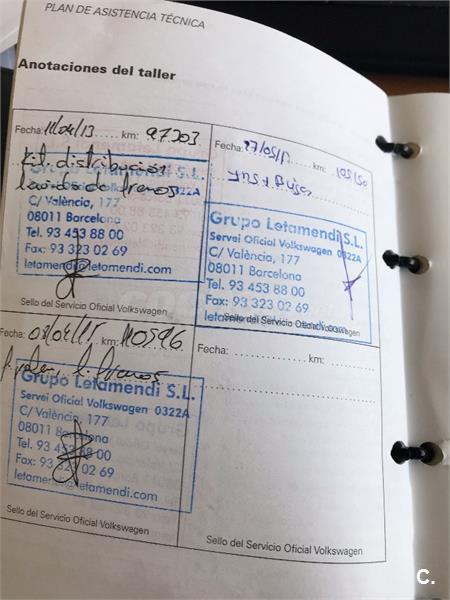 PLAN DE ASISTENCIA TÉCNICA
Anotaciones del taller
Fecha: 11/04/13 km: 97303
Kit distribución
Fecha: 27/05/ km: 105150
Grupo Letamendi S.L.
Servei Oficial Volkswagen 0322A
C/ València, 177
08011 Barcelona
Tel. 93 453 88 00
Fax: 93 323 02 69
letamendi@letamendi.com
Sello del Servicio Oficial Volkswagen
Grupo Letamendi S.L.
Servei Oficial Volkswagen 0322A
C/ València, 177
08011 Barcelona
Tel. 93 453 88 00
Fax: 93 323 02 69
Sello del Servicio Oficial Volkswagen
Fecha: km: 110596
Grupo Letamendi S.L.
Servei Oficial Volkswagen 0322A
C/ València, 177
08011 Barcelona
Tel. 93 453 88 00
Fax: 93 323 02 69
letamendi@letamendi.com
Sello del Servicio Oficial Volkswagen
Fecha: km:
Sello del Servicio Oficial Volkswagen
C.